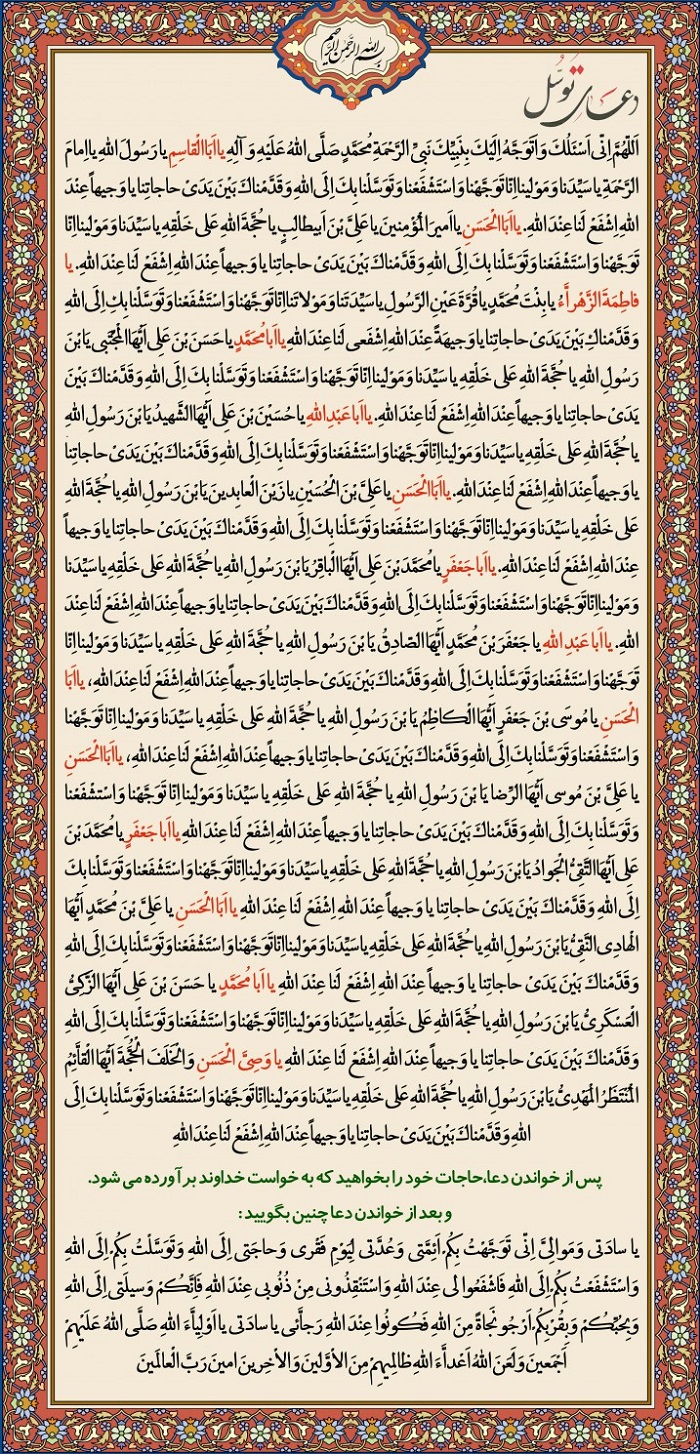 بسم الله الرحمن الرحیم
دعای توسل
اَللّهُمَّ اِنّى اَسْئَلُكَ وَ اَتَوَجَّهُ اِلَيْكَ بِنَبِيِّكَ نَبِىِّ الرَّحْمَةِ مُحَمَّدٍ صَلَّى اللهُ عَلَيْهِ وَ آلِهِ يا اَبَا الْقاسِمِ يا رَسُولَ اللهِ يا اِمامَ
الرَّحْمَةِ يا سَيِّدَنا وَ مَوْلينا اِنّا تَوَجَّهْنا وَ اسْتَشْفَعْنا وَ تَوَسَّلْنا بِكَ اِلَى اللهِ وَ قَدَّمْناكَ بَيْنَ يَدَىْ حاجاتِنا يا وَجيهاً عِنْدَ
اللهِ اِشْفَعْ لَنا عِنْدَ اللهِ. يا اَبَا الْحَسَنِ يا اَميرَ الْمُؤْمِنينَ يا عَلِىَّ بْنَ اَبيطالِبٍ يا حُجَّةَ اللهِ عَلى خَلْقِهِ يا سَيِّدَنا وَ مَوْلينا اِنّا
تَوَجَّهْنا وَ اسْتَشْفَعْنا وَ تَوَسَّلْنا بِكَ اِلَى اللهِ وَ قَدَّمْناكَ بَيْنَ يَدَىْ حاجاتِنا يا وَجيهاً عِنْدَ اللهِ اِشْفَعْ لَنا عِنْدَ اللهِ. يا
فاطِمَةَ الزَّهْراَّءُ يا بِنْتَ مُحَمَّدٍ يا قُرَّةَ عَيْنِ الرَّسُولِ يا سَيِّدَتَنا وَ مَوْلاتَنا اِنّا تَوَجَّهْنا وَ اسْتَشْفَعْنا وَ تَوَسَّلْنا بِكِ اِلَى اللهِ
وَ قَدَّمْناكِ بَيْنَ يَدَىْ حاجاتِنا يا وَجيهَةً عِنْدَ اللهِ اِشْفَعى لَنا عِنْدَ اللهِ يا اَبا مُحَمَّدٍ يا حَسَنَ بْنَ عَلِى اَيُّهَا الْمُجْتَبى يَا بْنَ
رَسُولِ اللهِ يا حُجَّةَ اللهِ عَلى خَلْقِهِ يا سَيِّدَنا وَ مَوْلينا اِنّا تَوَجَّهْنا وَ اسْتَشْفَعْنا وَ تَوَسَّلْنا بِكَ اِلَى اللهِ وَ قَدَّمْناكَ بَيْنَ
يَدَىْ حاجاتِنا يا وَجيهاً عِنْدَ اللهِ اِشْفَعْ لَنا عِنْدَ اللهِ. يا اَبا عَبْدِ اللهِ يا حُسَيْنَ بْنَ عَلِى اَيُّهَا الشَّهيدُ يَا بْنَ رَسُولِ اللهِ
يا حُجَّةَ اللهِ عَلى خَلْقِهِ يا سَيِّدَنا وَ مَوْلينا اِنّا تَوَجَّهْنا وَ اسْتَشْفَعْنا وَ تَوَسَّلْنا بِكَ اِلَى اللهِ وَ قَدَّمْناكَ بَيْنَ يَدَىْ حاجاتِنا
يا وَجيهاً عِنْدَ اللهِ اِشْفَعْ لَنا عِنْدَ اللهِ. يا اَبَا الْحَسَنِ يا عَلِىَّ بْنَ الْحُسَيْنِ يا زَيْنَ الْعابِدينَ يَا بْنَ رَسُولِ اللهِ يا حُجَّةَ اللهِ
عَلى خَلْقِهِ يا سَيِّدَنا وَ مَوْلينا اِنّا تَوَجَّهْنا وَ اسْتَشْفَعْنا وَ تَوَسَّلْنا بِكَ اِلَى اللهِ وَ قَدَّمْناكَ بَيْنَ يَدَىْ حاجاتِنا يا وَجيهاً
عِنْدَ اللهِ اِشْفَعْ لَنا عِنْدَ اللهِ. يا اَبا جَعْفَرٍ يا مُحَمَّدَ بْنَ عَلِى اَيُّهَا الْباقِرُ يَا بْنَ رَسُولِ اللهِ يا حُجَّةَ اللهِ عَلى خَلْقِهِ يا سَيِّدَنا
وَ مَوْلينا اِنّا تَوَجَّهْنا وَ اسْتَشْفَعْنا وَ تَوَسَّلْنا بِكَ اِلَى اللهِ وَ قَدَّمْناكَ بَيْنَ يَدَىْ حاجاتِنا يا وَجيهاً عِنْدَ اللهِ اِشْفَعْ لَنا عِنْدَ
اللهِ. يا اَبا عَبْدِ اللهِ يا جَعْفَرَ بْنَ مُحَمَّدٍ اَيُّهَا الصّادِقُ يَا بْنَ رَسُولِ اللهِ يا حُجَّةَ اللهِ عَلى خَلْقِهِ يا سَيِّدَنا وَ مَوْلينا اِنّا
تَوَجَّهْنا وَ اسْتَشْفَعْنا وَ تَوَسَّلْنا بِكَ اِلَى اللهِ وَ قَدَّمْناكَ بَيْنَ يَدَىْ حاجاتِنا يا وَجيهاً عِنْدَ اللهِ اِشْفَعْ لَنا عِنْدَ اللهِ، يا اَبَا
الْحَسَنِ يا مُوسَى بْنَ جَعْفَرٍ اَيُّهَا الْكاظِمُ يَا بْنَ رَسُولِ اللهِ يا حُجَّةَ اللهِ عَلى خَلْقِهِ يا سَيِّدَنا وَ مَوْلينا اِنّا تَوَجَّهْنا
وَ اسْتَشْفَعْنا وَ تَوَسَّلْنا بِكَ اِلَى اللهِ وَ قَدَّمْناكَ بَيْنَ يَدَىْ حاجاتِنا يا وَجيهاً عِنْدَ اللهِ اِشْفَعْ لَنا عِنْدَ اللهِ، يا اَبَا الْحَسَنِ
يا عَلِىَّ بْنَ مُوسى اَيُّهَا الرِّضا يَا بْنَ رَسُولِ اللهِ يا حُجَّةَ اللهِ عَلى خَلْقِهِ يا سَيِّدَنا وَ مَوْلينا اِنّا تَوَجَّهْنا وَ اسْتَشْفَعْنا
وَ تَوَسَّلْنا بِكَ اِلَى اللهِ وَ قَدَّمْناكَ بَيْنَ يَدَىْ حاجاتِنا يا وَجيهاً عِنْدَ اللهِ اِشْفَعْ لَنا عِنْدَ اللهِ يا اَبا جَعْفَرٍ يا مُحَمَّدَ بْنَ
عَلِى اَيُّهَا التَّقِىُّ الْجَوادُ يَا بْنَ رَسُولِ اللهِ يا حُجَّةَ اللهِ عَلى خَلْقِهِ يا سَيِّدَنا وَ مَوْلينا اِنّا تَوَجَّهْنا وَ اسْتَشْفَعْنا وَ تَوَسَّلْنا بِكَ
اِلَى اللهِ وَ قَدَّمْناكَ بَيْنَ يَدَىْ حاجاتِنا يا وَجيهاً عِنْدَ اللهِ اِشْفَعْ لَنا عِنْدَ اللهِ يا اَبَا الْحَسَنِ يا عَلِىَّ بْنَ مُحَمَّدٍ اَيُّهَا
الْهادِى النَّقِىُّ يَا بْنَ رَسُولِ اللهِ يا حُجَّةَ اللهِ عَلى خَلْقِهِ يا سَيِّدَنا وَ مَوْلينا اِنّا تَوَجَّهْنا وَ اسْتَشْفَعْنا وَ تَوَسَّلْنا بِكَ اِلَى اللهِ
وَ قَدَّمْناكَ بَيْنَ يَدَىْ حاجاتِنا يا وَجيهاً عِنْدَ اللهِ اِشْفَعْ لَنا عِنْدَ اللهِ يا اَبا مُحَمَّدٍ يا حَسَنَ بْنَ عَلِى اَيُّهَا الزَّكِىُّ
الْعَسْكَرِىُّ يَا بْنَ رَسُولِ اللهِ يا حُجَّةَ اللهِ عَلى خَلْقِهِ يا سَيِّدَنا وَ مَوْلينا اِنّا تَوَجَّهْنا وَ اسْتَشْفَعْنا وَ تَوَسَّلْنا بِكَ اِلَى اللهِ
وَ قَدَّمْناكَ بَيْنَ يَدَىْ حاجاتِنا يا وَجيهاً عِنْدَ اللهِ اِشْفَعْ لَنا عِنْدَ اللهِ يا وَصِىَّ الْحَسَنِ وَ الْخَلَفَ الْحُجَّةَ اَيُّهَا الْقاَّئِمُ
الْمُنْتَظَرُ الْمَهْدِىُّ يَا بْنَ رَسُولِ اللهِ يا حُجَّةَ اللهِ عَلى خَلْقِهِ يا سَيِّدَنا وَ مَوْلينا اِنّا تَوَجَّهْنا وَ اسْتَشْفَعْنا وَ تَوَسَّلْنا بِكَ اِلَى
اللهِ وَ قَدَّمْناكَ بَيْنَ يَدَىْ حاجاتِنا يا وَجيهاً عِنْدَ اللهِ اِشْفَعْ لَنا عِنْدَ اللهِ
پس از خواندن دعا،حاجات خود را بخواهید که به خواست خداوند بر آورده می شود.
و بعد از خواندن دعا چنین بگویید:
يا سادَتى وَ مَوالِىَّ اِنّى تَوَجَّهْتُ بِكُمْ اَئِمَّتى وَ عُدَّتى لِيَوْمِ فَقْرى وَ حاجَتى اِلَى اللهِ وَ تَوَسَّلْتُ بِكُمْ اِلَى اللهِ
وَ اسْتَشْفَعْتُ بِكُمْ اِلَى اللهِ فَاشْفَعُوا لى عِنْدَ اللهِ وَ اسْتَنْقِذُونى مِنْ ذُنُوبى عِنْدَ اللهِ فَاِنَّكُمْ وَسيلَتى اِلَى اللهِ
وَ بِحُبِّكُمْ وَ بِقُرْبِكُمْ اَرْجُو نَجاةً مِنَ اللهِ فَكُونُوا عِنْدَ اللهِ رَجاَّئى يا سادَتى يا اَوْلِياَّءَ اللهِ صَلَّى اللهُ عَلَيْهِمْ
اَجْمَعينَ وَ لَعَنَ اللهُ اَعْداَّءَ اللهِ ظالِميهِمْ مِنَ الاَْوَّلينَ وَ الاْخِرينَ امينَ رَبَّ الْعالَمينَ